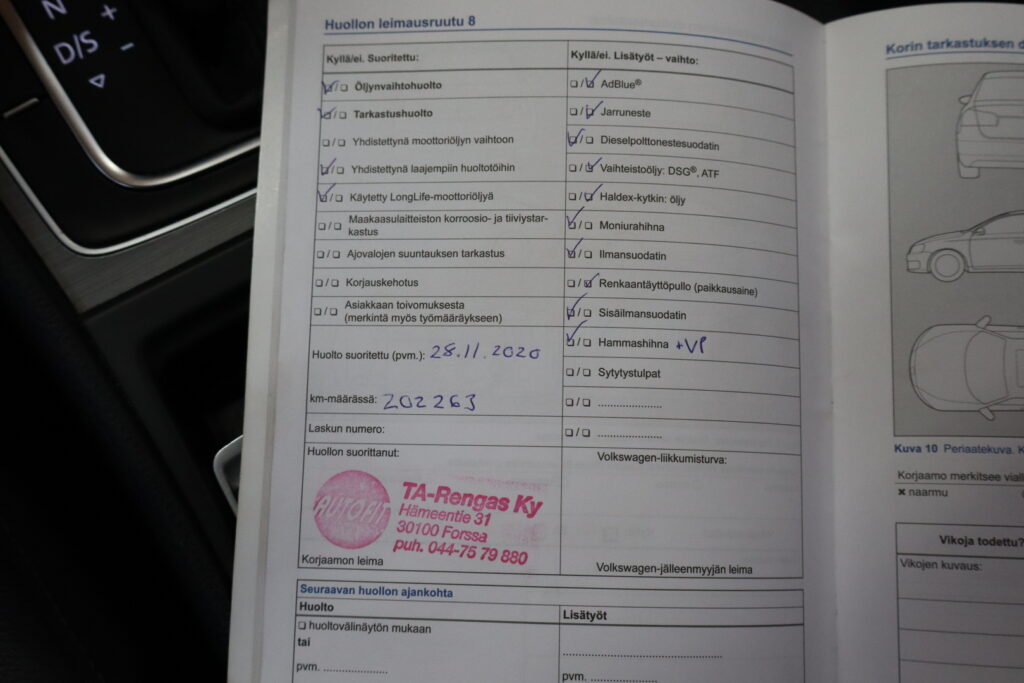 N
+
D/S
-
Huollon leimausruutu 8
Kyllä/ei. Suoritettu:
☑/☐ Öljynvaihtohuolto
☑/☐ Tarkastushuolto
☐/☐ Yhdistettynä moottoriöljyn vaihtoon
☑/☐ Yhdistettynä laajempiin huoltotöihin
☑/☐ Käytetty LongLife-moottoriöljyä
☐/☐ Maakaasulaitteiston korroosio- ja tiiviystar-
kastus
☐/☐ Ajovalojen suuntauksen tarkastus
☐/☐ Korjauskehotus
☐/☐ Asiakkaan toivomuksesta
(merkintä myös työmääräykseen)
Huolto suoritettu (pvm.): 28.11.2020
km-määrässä: 202263
Laskun numero:
Huollon suorittanut:
AUTOFIT
TA-Rengas Ky
Hämeentie 31
30100 Forssa
puh. 044-75 79 880
Korjaamon leima
Kyllä/ei. Lisätyöt – vaihto:
☐/☑ AdBlue®
☐/☑ Jarruneste
☑/☐ Dieselpolttonestesuodatin
☐/☑ Vaihteistoöljy: DSG®, ATF
☐/☑ Haldex-kytkin: öljy
☑/☐ Moniurahihna
☑/☐ Ilmansuodatin
☐/☑ Renkaantäyttöpullo (paikkausaine)
☑/☐ Sisäilmansuodatin
☑/☐ Hammashihna +VP
☐/☐ Sytytystulpat
☐/☐ .....................
☐/☐ .....................
Volkswagen-liikkumisturva:
Volkswagen-jälleenmyyjän leima
Seuraavan huollon ajankohta
Huolto
☐ huoltovälinäytön mukaan
tai
pvm. .....................
Lisätyöt
.....................
pvm. .....................
Korin tarkastuksen
Kuva 10 Periaatekuva.
Korjaamo merkitsee
✖ naarmu
Vikoja todettu?
Vikojen kuvaus: